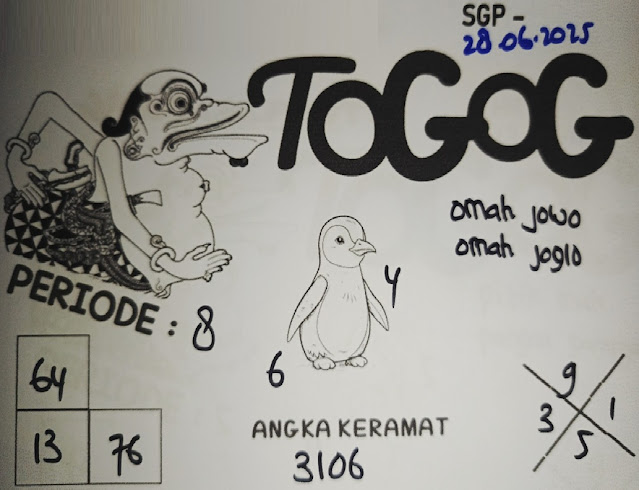 SGP -
28.06.2025
TOGOG
omah jowo
omah joglo
PERIODE : 8
4
6
64
13 76
ANGKA KERAMAT
3106
9
3 1
5